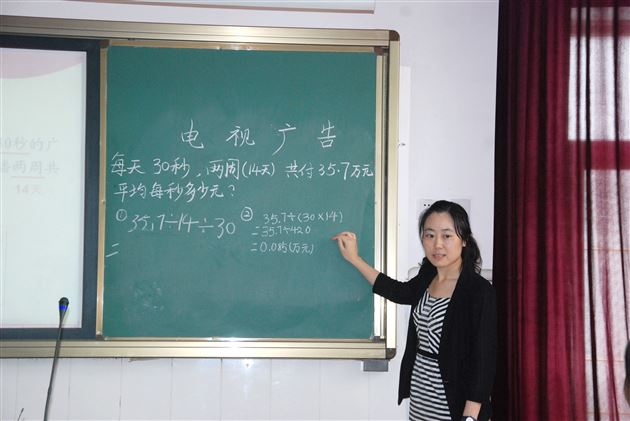 30秒的广
播两周共
14天
电视广告
每天30秒，两周(14天)共付35.7万元
平均每秒多少元？
① 35.7÷14÷30
=
② 35.7÷(30×14)
=35.7÷420
=0.085(万元)